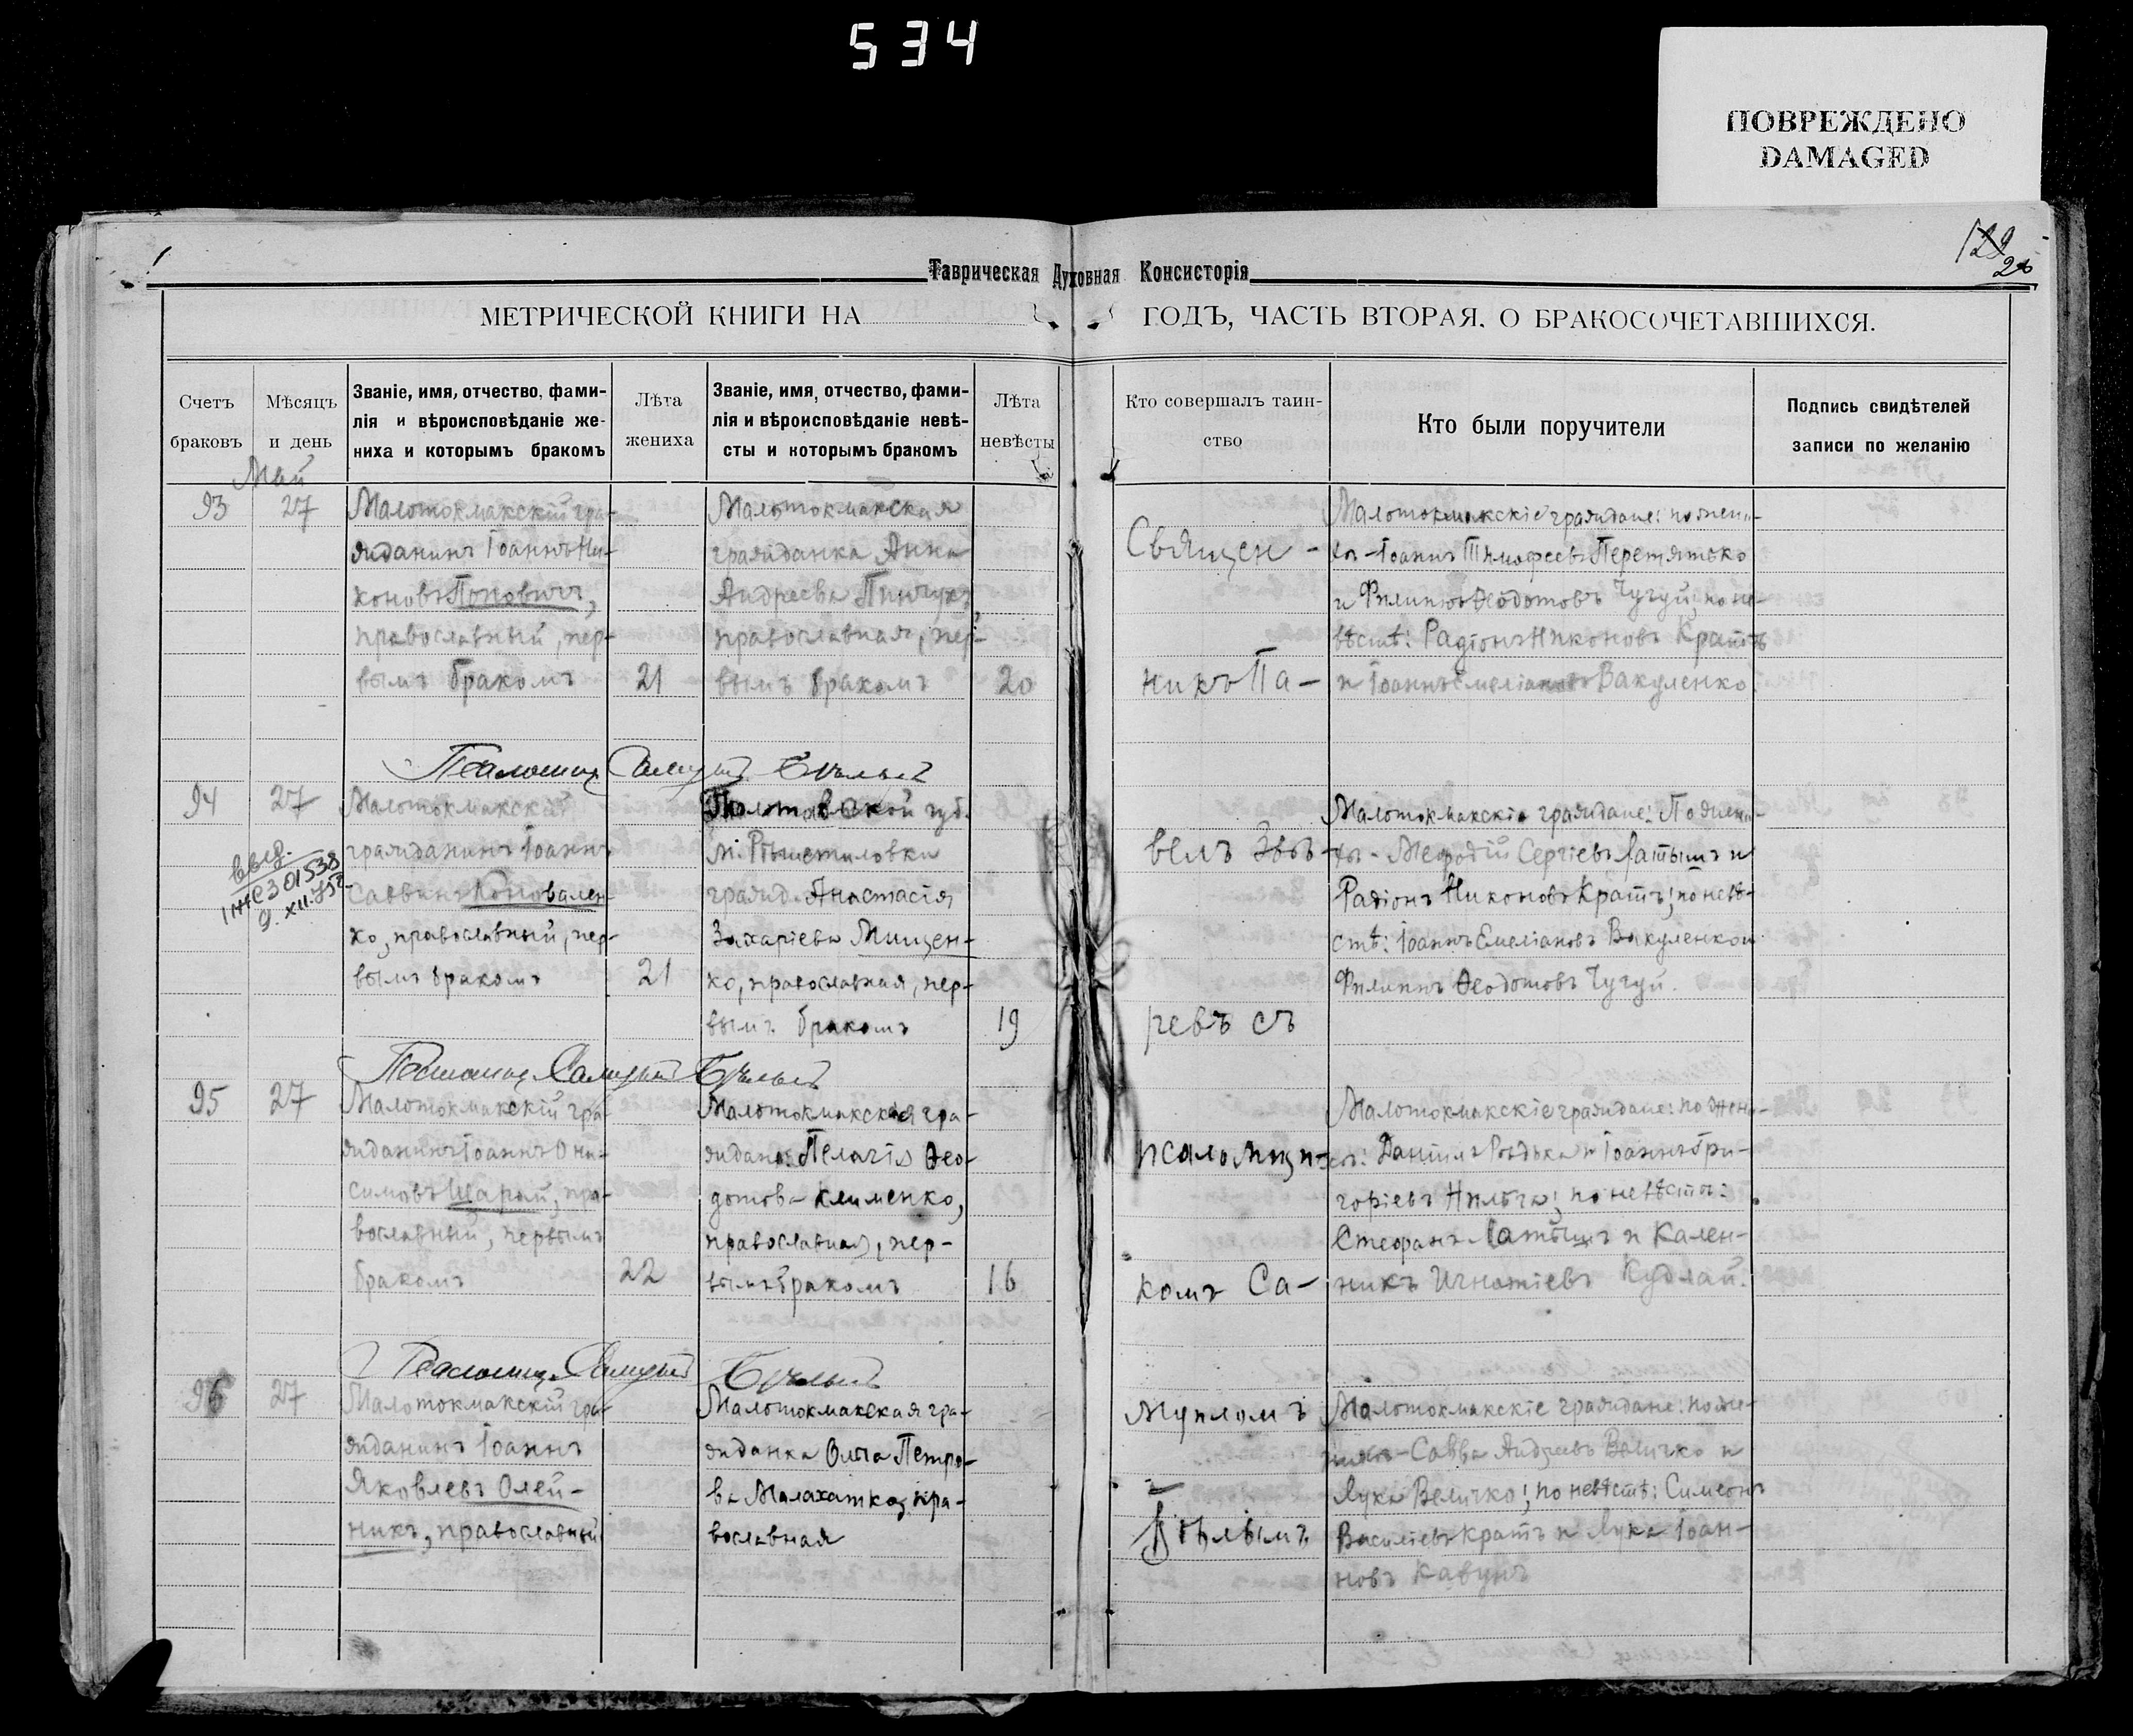 534
ПОВРЕЖДЕНО
DAMAGED
Таврическая Духовная Консисторія
МЕТРИЧЕСКОЙ КНИГИ НА
ГОДЪ, ЧАСТЬ ВТОРАЯ, О БРАКОСОЧЕТАВШИХСЯ.
Счетъ
браковъ
Мѣсяцъ
и день
Званіе, имя, отчество, фами-
лія и вѣроисповѣданіе же-
ниха и которымъ бракомъ
Лѣта
жениха
Званіе, имя, отчество, фами-
лія и вѣроисповѣданіе невѣ-
сты и которымъ бракомъ
Лѣта
невѣсты
Кто совершалъ таин-
ство
Кто были поручители
Подпись свидѣтелей
записи по желанію
Май
93
27
Малотокмакскій гра-
жданинъ Іоаннъ Ни-
коновъ Поповичъ,
православный, пер-
вымъ бракомъ
21
Малотокмакская
гражданка Анна
Андреева Пинчукъ,
православная, пер-
вымъ бракомъ
20
Малотокмакскіе граждане: по жени-
хѣ - Іоаннъ Тимофеевъ Перетятько
и Филиппъ Ѳеодотовъ Чугуй; по не-
вѣстѣ: Радіонъ Никоновъ Кратъ
и Іоаннъ Емеліановъ Вакуленко
Псаломщ. Самуилъ Бѣлый
94
27
Малотокмакскій
гражданинъ Іоаннъ
Саввинъ Коновален-
ко, православный, пер-
вымъ бракомъ
21
Полтавской губ.
м. Рѣшетиловки
гражд. Анастасія
Захаріева Мищен-
ко, православная, пер-
вымъ бракомъ
19
Малотокмакскіе граждане: По жени-
хѣ - Меѳодій Сергіевъ Латышъ и
Радіонъ Никоновъ Кратъ; по невѣ-
стѣ: Іоаннъ Емеліановъ Вакуленко и
Филиппъ Ѳеодотовъ Чугуй.
Псаломщ. Самуилъ Бѣлый
95
27
Малотокмакскій гра-
жданинъ Іоаннъ Они-
симовъ Шарый, пра-
вославный, первымъ
бракомъ
22
Малотокмакская гра-
ждан. Пелагія Ѳео-
дотов- Клименко,
православная, пер-
вымъ бракомъ
16
Малотокмакскіе граждане: по жени-
хѣ: Даніилъ Рѣдька и Іоаннъ Гри-
горіевъ; по невѣстѣ:
Стефанъ Латышъ и Кален-
никъ Игнатіевъ Кудлай.
Псаломщ. Самуилъ Бѣлый
96
27
Малотокмакскій гра-
жданинъ Іоаннъ
Яковлевъ Олей-
никъ, православный
Малотокмакская гра-
жданка Ольга Петро-
ва Малахатка, пра-
вославная
Малотокмакскіе граждане: по же-
нихѣ - Савва Андреевъ Величко и
Лука Величко; по невѣстѣ: Симеонъ
Василіевъ Кратъ и Лука Іоан-
новъ Кавунъ
Священ-
никъ Па-
велъ Звѣ-
ревъ съ
псаломщи-
комъ Са-
муиломъ
Бѣлымъ